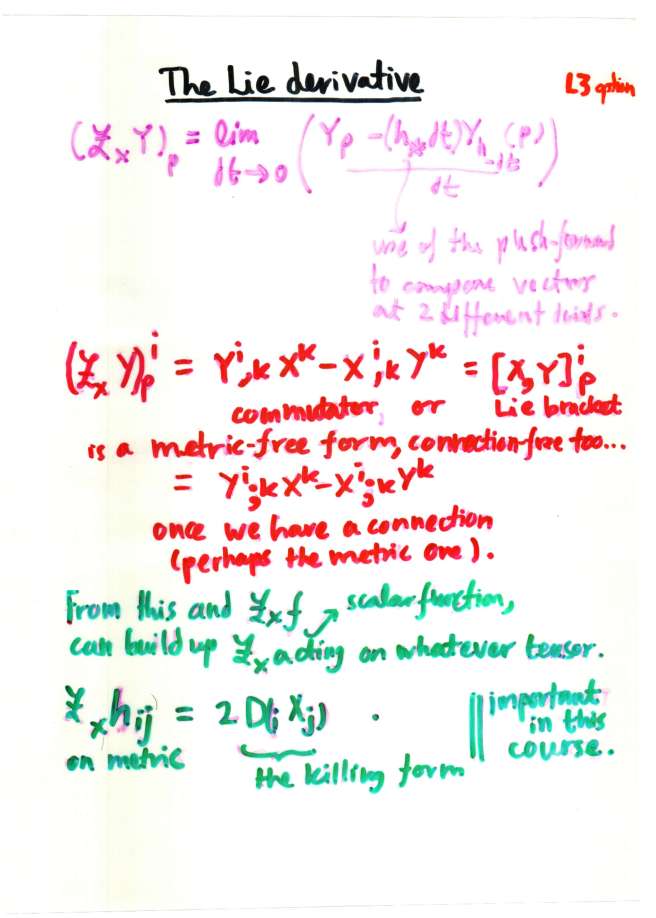 The Lie derivative
L3 option
(£ₓY)ₚ = lim dt→0 ( Yₚ − (h_* dt) Y_{h_{-dt}}(p) / dt )
use of the push-forward
to compare vectors
at 2 different points.
(£ₓ Y)ₚⁱ = Yⁱ,ₖ Xᵏ − Xⁱ,ₖ Yᵏ = [X,Y]ₚⁱ
commutator, or Lie bracket
is a metric-free form, connection-free too...
= Yⁱ;ₖ Xᵏ − Xⁱ;ₖ Yᵏ
once we have a connection
(perhaps the metric one).
From this and £ₓf scalar function,
can build up £ₓ acting on whatever tensor.
£ₓhᵢⱼ = 2 D(ᵢ Xⱼ) .
on metric
the killing form
important
in this
course.